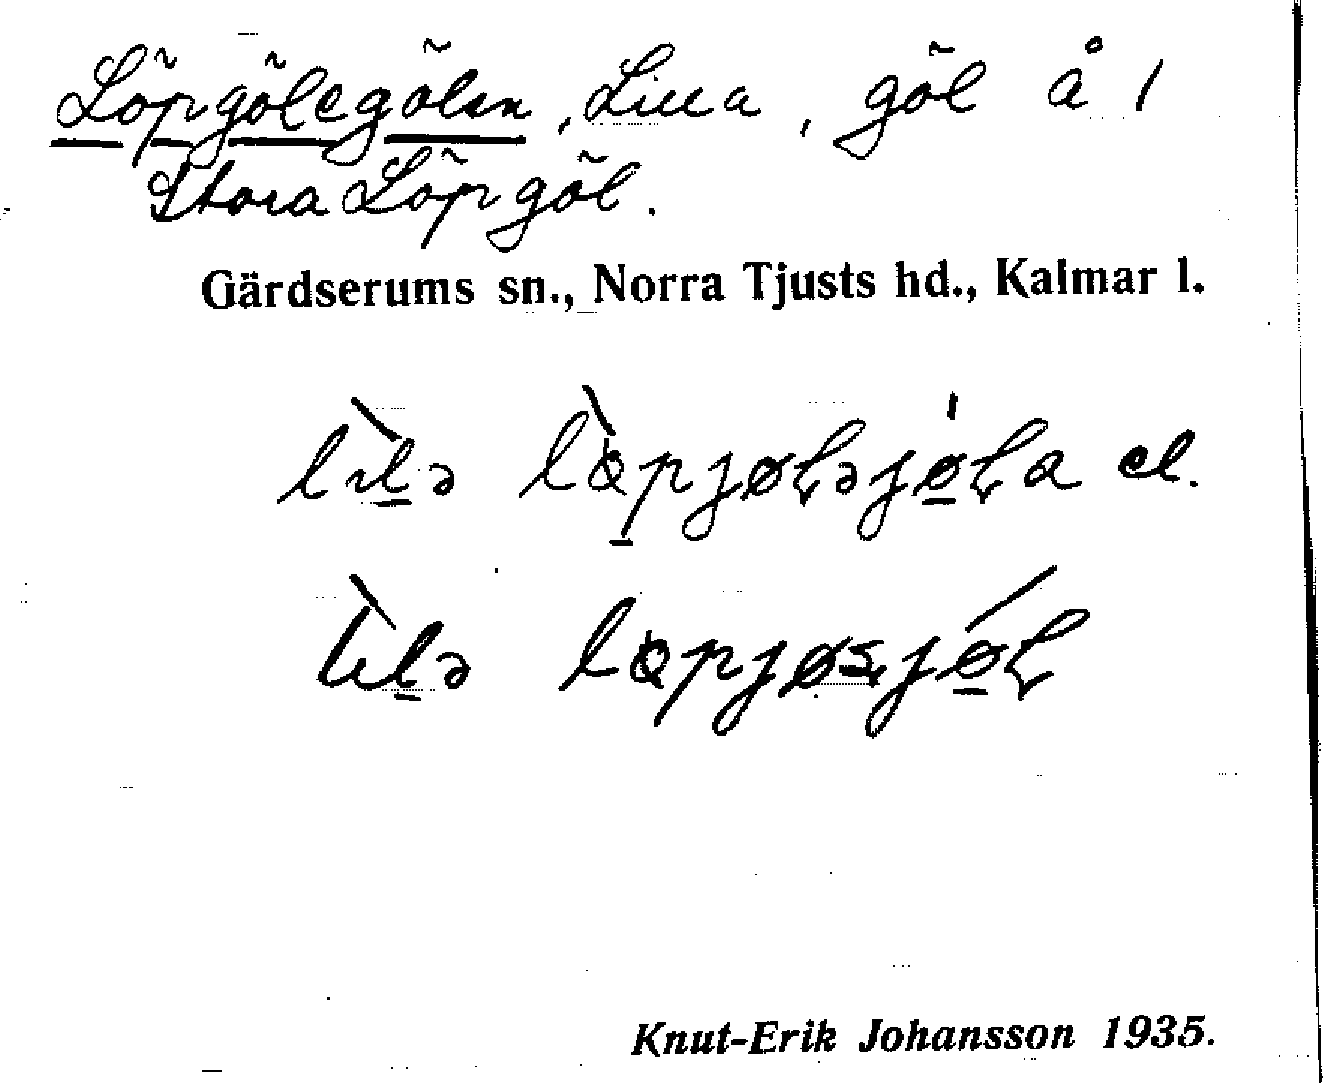 Löpgölegölen, Lilla, göl å 1
Stora Löpgöl.
Gärdserums sn., Norra Tjusts hd., Kalmar l.
lɩ̀lə lò̀pjøɭəjø̀ɭa el.
lɩ̀lə lopjøsjǿɭ
Knut-Erik Johansson 1935.